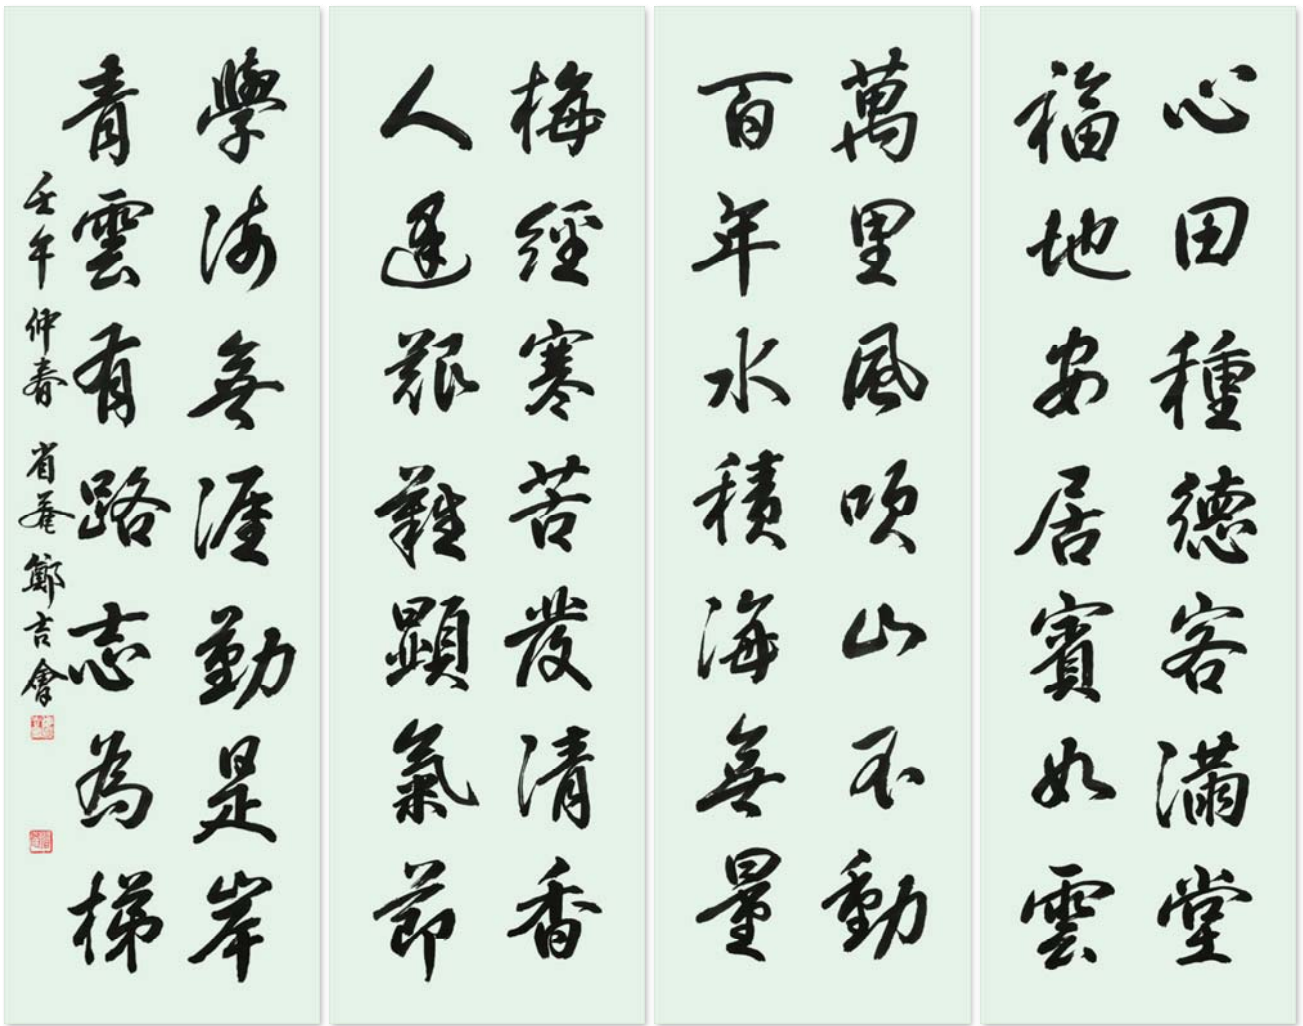 心田種德客滿堂
福地安居賓如雲
萬里風吹山不動
百年水積海無量
梅經寒苦發清香
人逢艱難顯氣節
學海無涯勤是岸
青雲有路志為梯
壬午仲春省菴鄭吉會